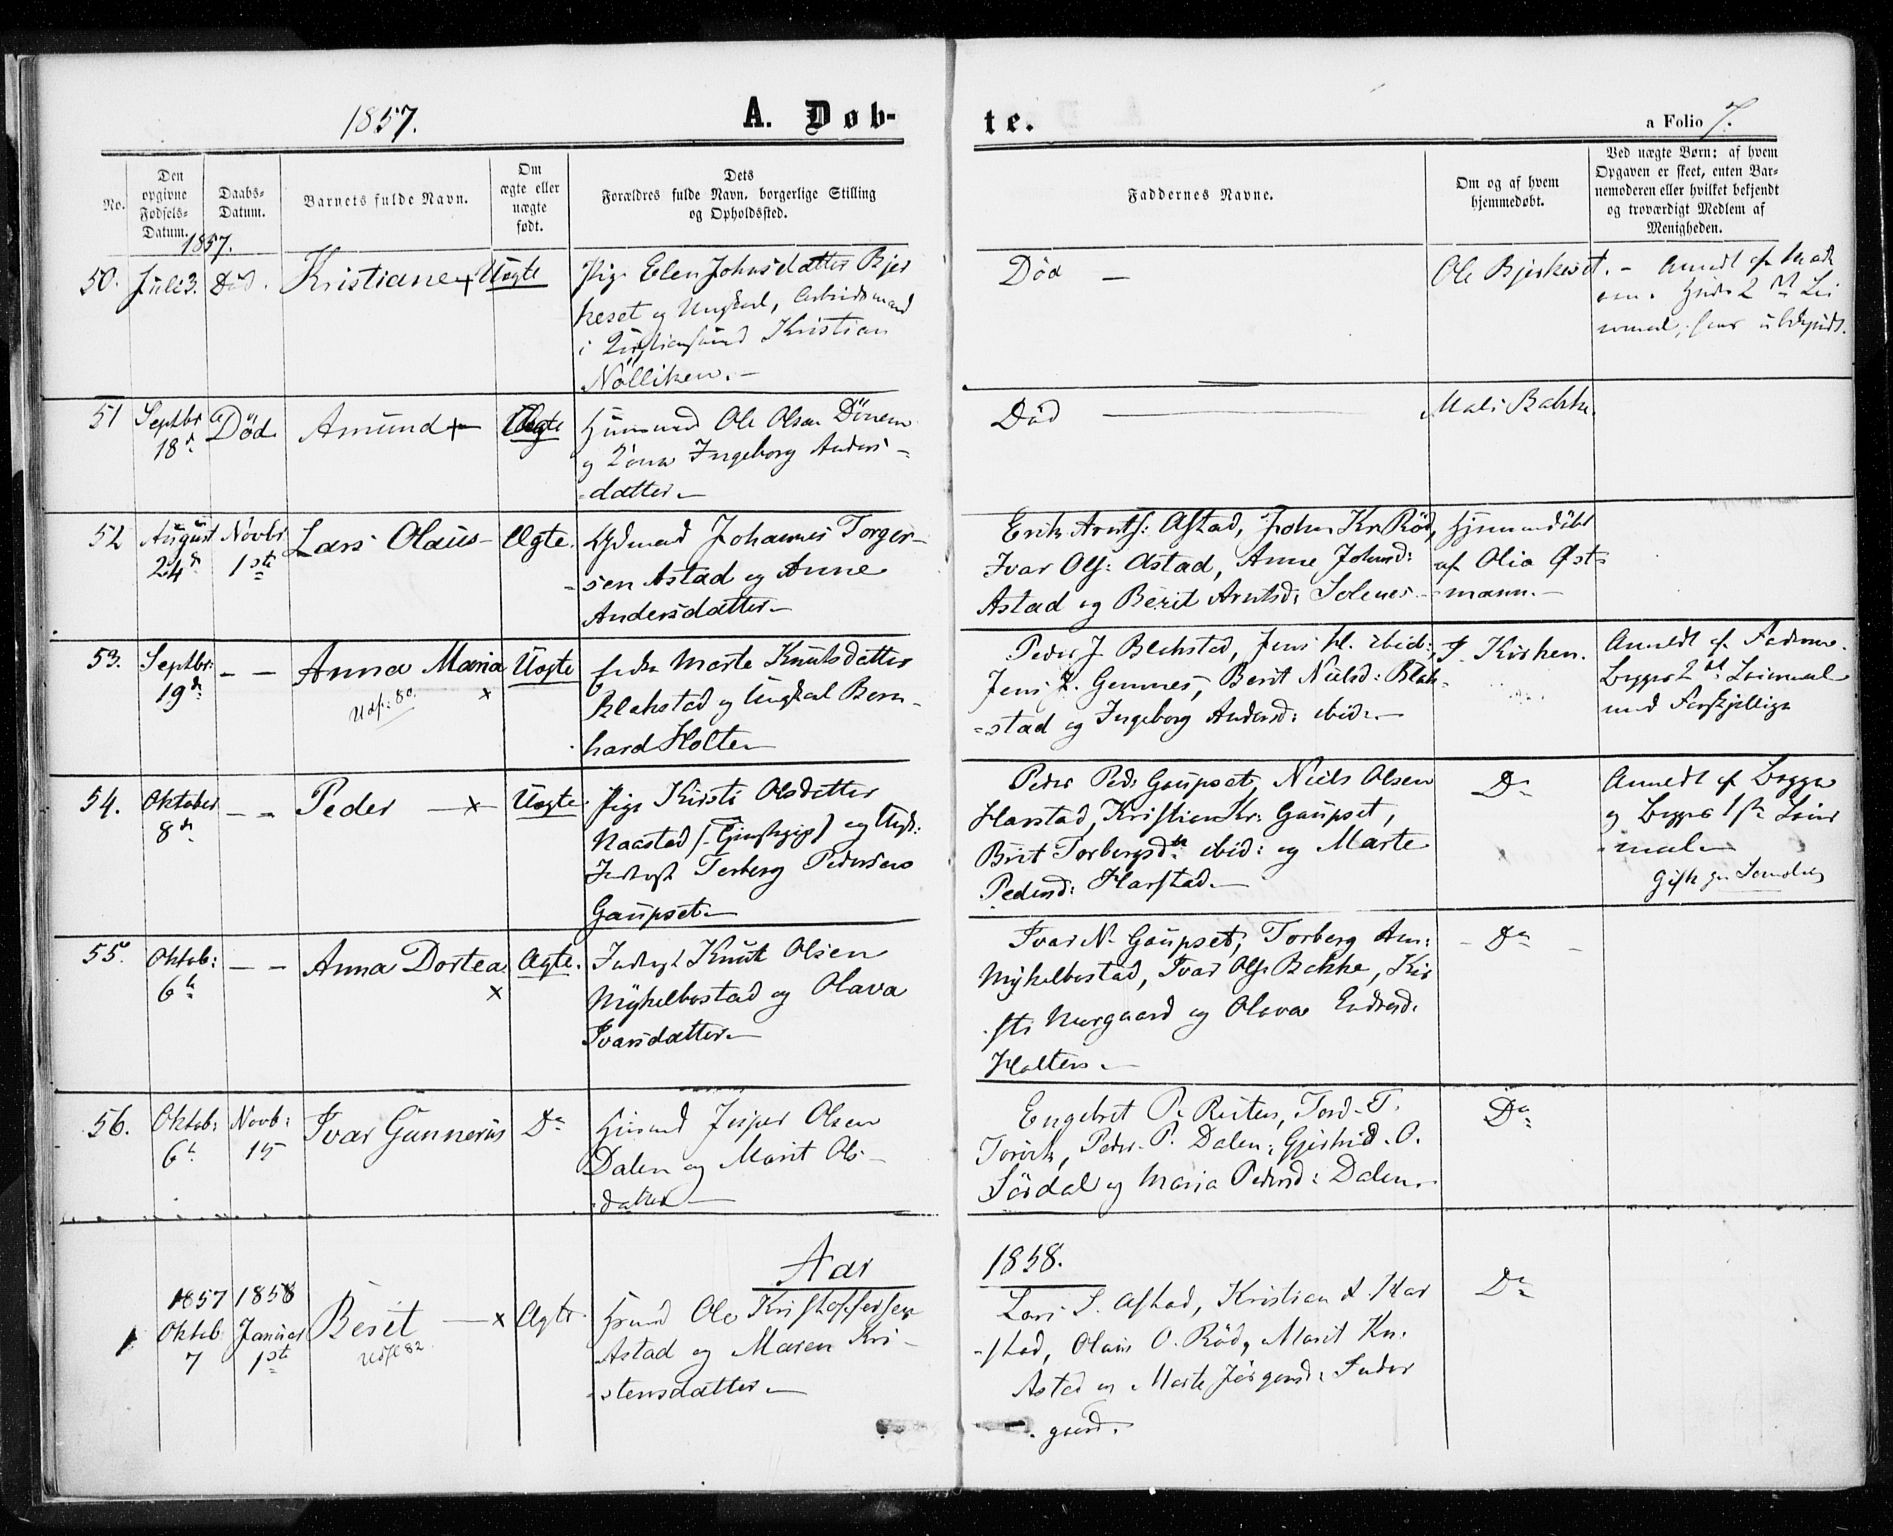 1857.
A. Døb-
te.
a Folio 7.
No.
Den opgivne Fødsels-Datum.
Daabs-Datum.
Barnets fulde Navn.
Om ægte eller uægte født.
Dets
Forældres fulde Navn, borgerlige Stilling
og Opholdssted.
Faddernes Navne.
Om og af hvem
hjemmedøbt.
Ved uægte Børn: af hvem
Opgaven er skeet, enten Bar-
nemoderen eller hvilket bekjendt
og troværdigt Medlem af
Menigheden.
1857.
50. Juli 3. Død. Kristiane + Uægte
Pige Elen Johnsdatter Bjer
keset og Ungkarl, Arbeidsmand
i Kristiansund Kristian
Nølliken. –
Død –
Ole Bjerkeset. –
51 Septbr 18d Død Amund + Ægte
Huusmand Ole Olsen Dönem
og Kone Ingeborg Anders-
datter –
Død
Mali Bakke
52 August 24d Novbr 1ste Lars Olaus – Ægte.
Johannes Torger-
sen Astad og Anne
Andersdatter –
Erik Arnts: Astad, John Kr. Röd,
Ivar Ols: Astad, Anne Johnsd:
Astad og Berit Arntsd: Solenes. –
Hjemmedöbt
af Olia Øst-
mann. –
53. Septbr: 19d – – Anna Maria × Uægte
Udf: 80.
Marte Knutsdatter
Blakstad og Ungkarl Bern-
hard Holten
Peder J. Blakstad, Jens M. ibid:,
Jens L. Gemnes, Berit Nielsd: Blak-
stad og Ingeborg Andersd: ibid: –
I Kirken.
Anmeldt af Faderen.
Begges 2det Leiermaal
med Forskjellige
54. Oktober 8d – – Peder – × – Uægte.
Pige Kirsti Olsdatter
Naastad og Ungk:
Torberg Pedersen
Gaupset –
Peder Peds Gaupset, Niels Olsen
Harstad, Kristian Kr: Gaupset,
Brit Torbergsdtr ibid: og Marte
Pedersd: Harstad. –
Do
Anmeldt af Begge
og Begges 1ste Leier
maal –
55. Oktob: 6te – – Anna Dortea × Ægte.
Knut Olsen
Mykelbostad og Olava
Ivarsdatter –
Ivar N. Gaupset, Torberg Am:
Mykelbostad, Ivar Ols Bakke, Kir
sti Norgaard og Olava Endresd.
Holten. –
– Do –
56. Oktob: 6te Novb: 15 Ivar Gunnerus Do
Huusmand Jesper Olsen
Dalen og Marit Ols-
datter –
Engebret P. Reiten, Tord T.
Torvik, Peder P. Dalen, Gjertrud O.
Sördal og Maria Pedersd: Dalen.
Do
Aar
1858.
1 1857 Oktob 7 1858 Januar 1ste Berit – × Ægte.
Udf: 82
Ole Kristoffersen
Astad og Maren Kri-
stensdatter –
Lars S. Astad, Kristian L. Har
stad, Olaus O. Röd, Marit Kn.
Astad og Marte Jörgensd: Inder
gaard.
Do